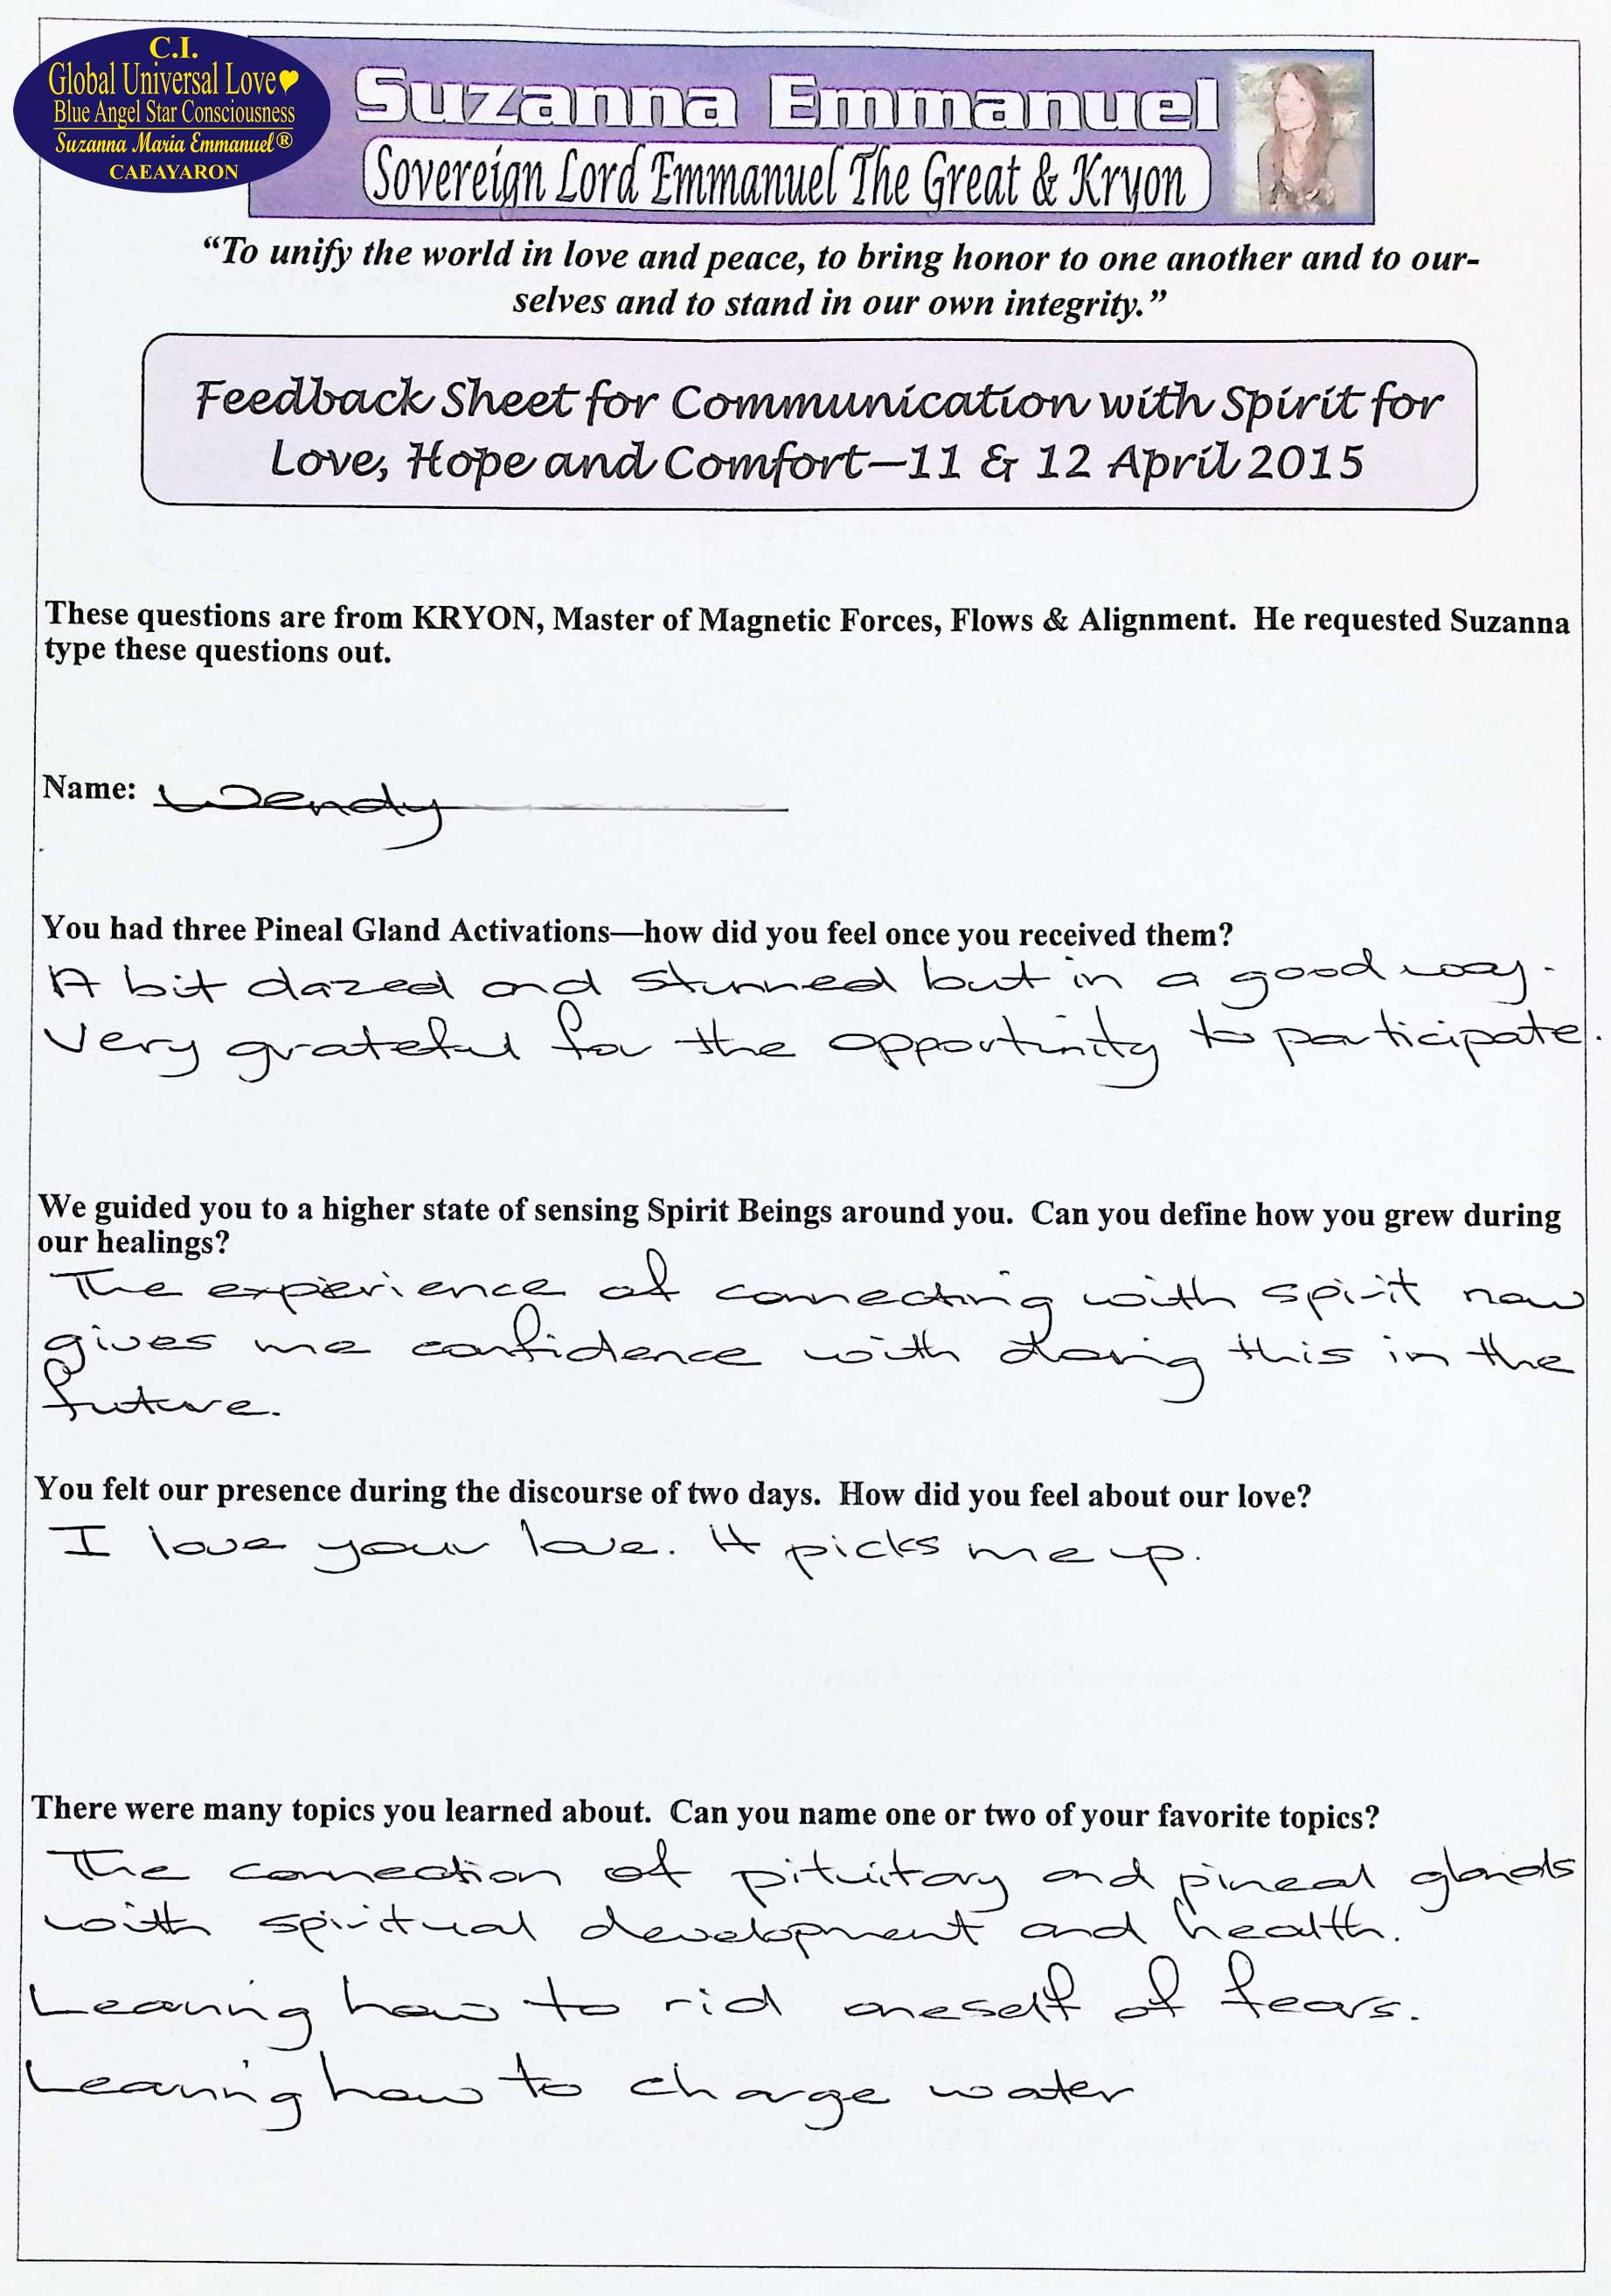 C.I.
Global Universal Love
Blue Angel Star Consciousness
Suzanna Maria Emmanuel®
CAEAYARON
Suzanna Emmanuel
Sovereign Lord Emmanuel The Great & Kryon
“To unify the world in love and peace, to bring honor to one another and to our-
selves and to stand in our own integrity.”
Feedback Sheet for Communication with Spirit for
Love, Hope and Comfort—11 & 12 April 2015
These questions are from KRYON, Master of Magnetic Forces, Flows & Alignment. He requested Suzanna
type these questions out.
Name: Wendy
You had three Pineal Gland Activations—how did you feel once you received them?
A bit dazed and stunned but in a good way.
Very grateful for the opportunity to participate.
We guided you to a higher state of sensing Spirit Beings around you. Can you define how you grew during
our healings?
The experience of connecting with spirit now
gives me confidence with doing this in the
future.
You felt our presence during the discourse of two days. How did you feel about our love?
I love your love. It picks me up.
There were many topics you learned about. Can you name one or two of your favorite topics?
The connection of pituitary and pineal glands
with spiritual development and health.
Learning how to rid oneself of fears.
Learning how to charge water